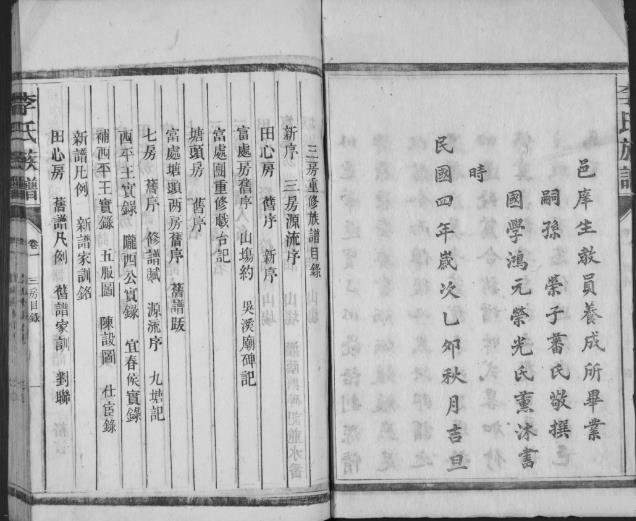 邑庠生教員養成所畢業
嗣孫 榮子蓄氏敬撰
國學鴻元榮光氏薰沐書
時
民國四年歲次乙卯秋月吉旦
李氏族譜
三房重修族譜目錄
新序 三房源流序
田心房 舊序 新序
富處房舊序 山塲約 吳溪廟碑記
富處圖重修戲台記
塘頭房 舊序
富處塘頭两房舊序 舊譜跋
七房 舊序 修譜賦 源流序 九塘記
西平王實錄 隴西公實錄 宜春侯實錄
補西平王實錄 五服圖 陳設圖 仕宦錄
新譜凡例 新譜家訓銘
田心房 舊譜凡例 舊譜家訓 對聯
李氏族譜 卷一 三房目錄 一